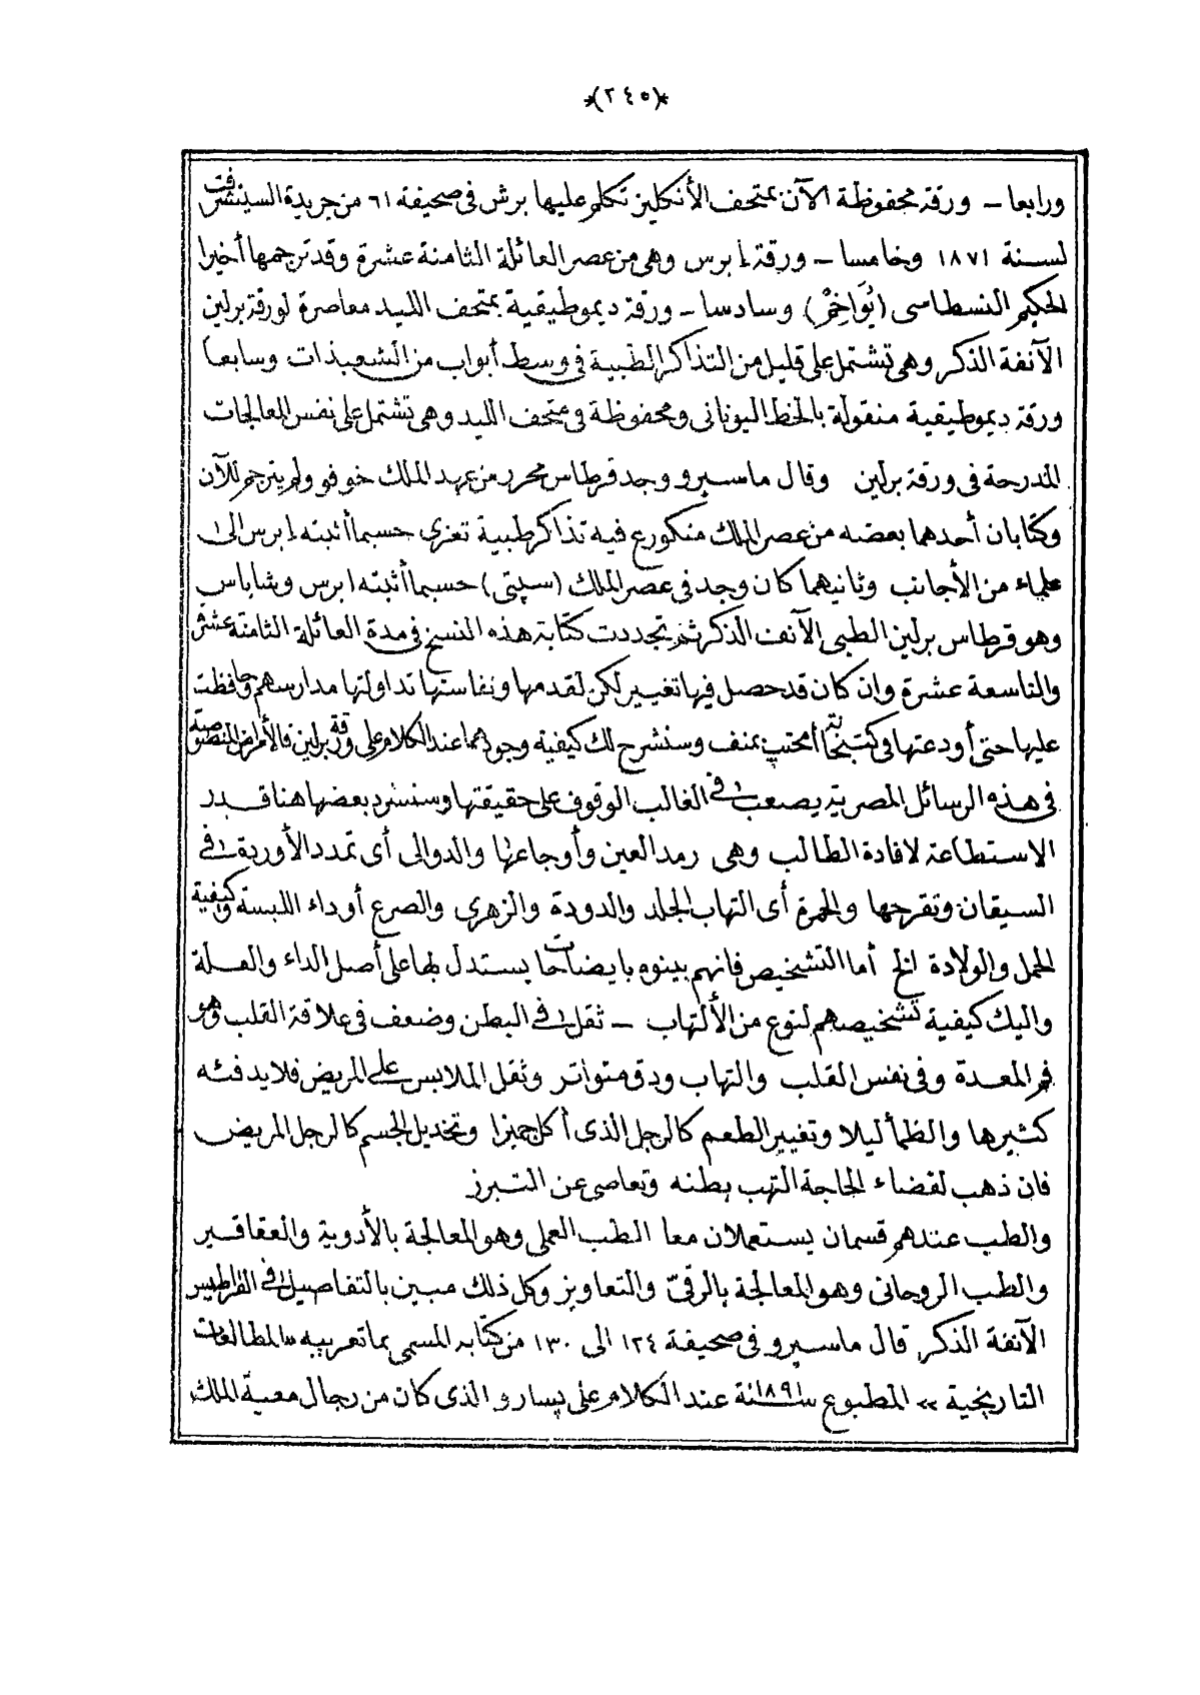 *(٢٤٥)*
ورابعا – ورقة محفوظة الآن بمتحف الأنكليز تكلم عليها برش فى صحيفة ٦١ من جريدة السينتفرفت
لسنة ١٨٧١ وخامسا – ورقة إبرس وهى من عصر العائلة الثامنة عشرة وقد ترجمها أخيرا
الحكيم النسطاسى (يُوَاخِمْ) وسادسا – ورقة ديموطيقية بمتحف الليد معاصرة لورقة برلين
الآنفة الذكر وهى تشتمل على قليل من التذاكر الطبية فى وسط أبواب من الشعبذات وسابعا
ورقة ديموطيقية منقولة بالخط اليونانى ومحفوظة فى متحف الليد وهى تشتمل على نفس المعالجات
المندرجة فى ورقة برلين وقال ماسپرو وجد قرطاس محرر من عهد الملك خوفو ولم يترجم للآن
وكتابان أحدهما بعضه من عصر الملك منكورع فيه تذاكر طبية تعزى حسبما أثبته إبرس الى
علماء من الأجانب وثانيهما كان وجد فى عصر الملك (سپتى) حسبما أثبته ابرس وشاباس
وهو قرطاس برلين الطبى الآنف الذكر ثم تجددت كتابة هذه النسخ فى مدة العائلة الثامنة عشرة
والتاسعة عشرة وان كان قد حصل فيها تغيير لكن لقدمها ونفاستها تداولتها مدارسهم وحافظت
عليها حتى أودعتها فى كتبخانة أمحتب بمنف وسنشرح لك كيفية وجودهما عند الكلام على ورقة برلين فالأمراض المنصوصة
فى هذه الرسائل المصرية يصعب فى الغالب الوقوف على حقيقتها وسنسرد بعضها هنا قدر
الاستطاعة لافادة الطالب وهى رمد العين وأوجاعها والدوالى أى تمدد الأوردة فى
السيقان وتقرحها والحمرة أى التهاب الجلد والدودة والزهرى والصرع أو داء اللبسة وكيفية
الحمل والولادة الخ أما التشخيص فانهم بينوه بايضاحات يستدل بها على أصل الداء والعلة
واليك كيفية تشخيصهم لنوع من الألتهاب – ثقل فى البطن وضعف فى علاقة القلب وهو
فم المعدة وفى نفس القلب والتهاب ودق متواتر وثقل الملابس على المريض فلا يدفئه
كثيرها والظمأ ليلا وتغيير الطعم كالرجل الذى أكل جميزا وتخديل الجسم كالرجل المريض
فان ذهب لقضاء الحاجة التهب بطنه وتعاصى عن التبرز
والطب عندهم قسمان يستعملان معا الطب العملى وهو المعالجة بالأدوية والعقاقير
والطب الروحانى وهو المعالجة بالرقىّ والتعاويز وكل ذلك مبين بالتفاصيل فى القراطيس
الآنفة الذكر قال ماسپرو فى صحيفة ١٢٤ الى ١٣٠ من كتابه المسمى بما تعريبه «المطالعات
التاريخية» المطبوع سنة ١٨٩١ عند الكلام على پسارو الذى كان من رجال معية الملك